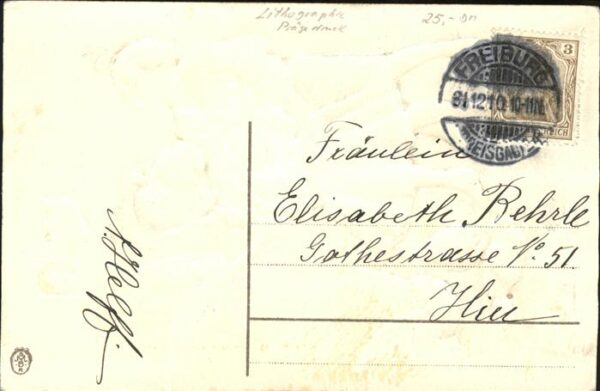 Lithographie
Prägedruck
25,-
3
REICH
FREIBURG
31.12.10.10-11N.
(BREISGAU)
Fräulein
Elisabeth Rehrle
Gothestrasse No. 51
Hier